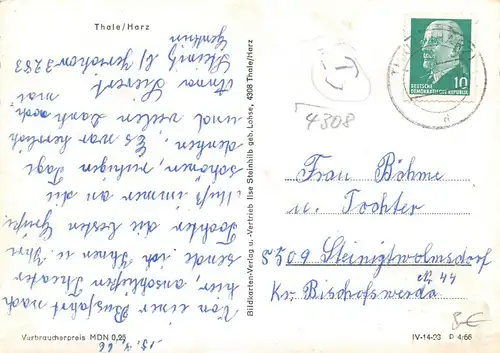 Thale/Harz
15. 4. 66
Von einer Busfahrt nach
hier, anschließen Theater
sende ich Ihnen u. Ihrer
Tochter die besten Grüße.
Muß immer an die
schönen, ruhigen Tage
denken. Es war herrlich
und vielen Dank noch
mal
Anna Sievert
3283
Genthin
Bildkarten-Verlag u. -Vertrieb Ilse Steinhilb geb. Lohse, 4308 Thale/Harz
T
4308
DEUTSCHE
DEMOKRATISCHE REPUBLIK
10
Frau Böhme
u. Tochter
8509 Steinigtwolmsdorf
Nr 44
Kr. Bischofswerda
Verbraucherpreis MDN 0,25
IV-14-28 P 4/66